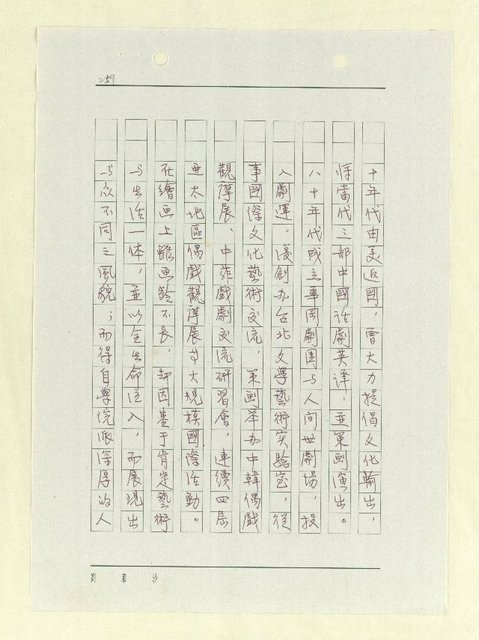 259
十年代由美返國，曾大力提倡文化輸出，
將當代三部中國話劇英譯，並策劃演出。
八十年代成立華岡劇團与人间世劇場，投
入劇運，後創办台北文學藝術实驗室，從
事國際文化藝術交流，策劃举办中韓偶戲
觀摩展、中菲戲劇交流研習會，連續四屆
亞太地區偶戲觀摩展等大規模國際活動。
在繪画上雖画龄不長，却因基于肯定藝術
与生活一体，並以全生命匡入，而展現出
与众不同之風貌；而得自學院派深厚的人
劉慕沙